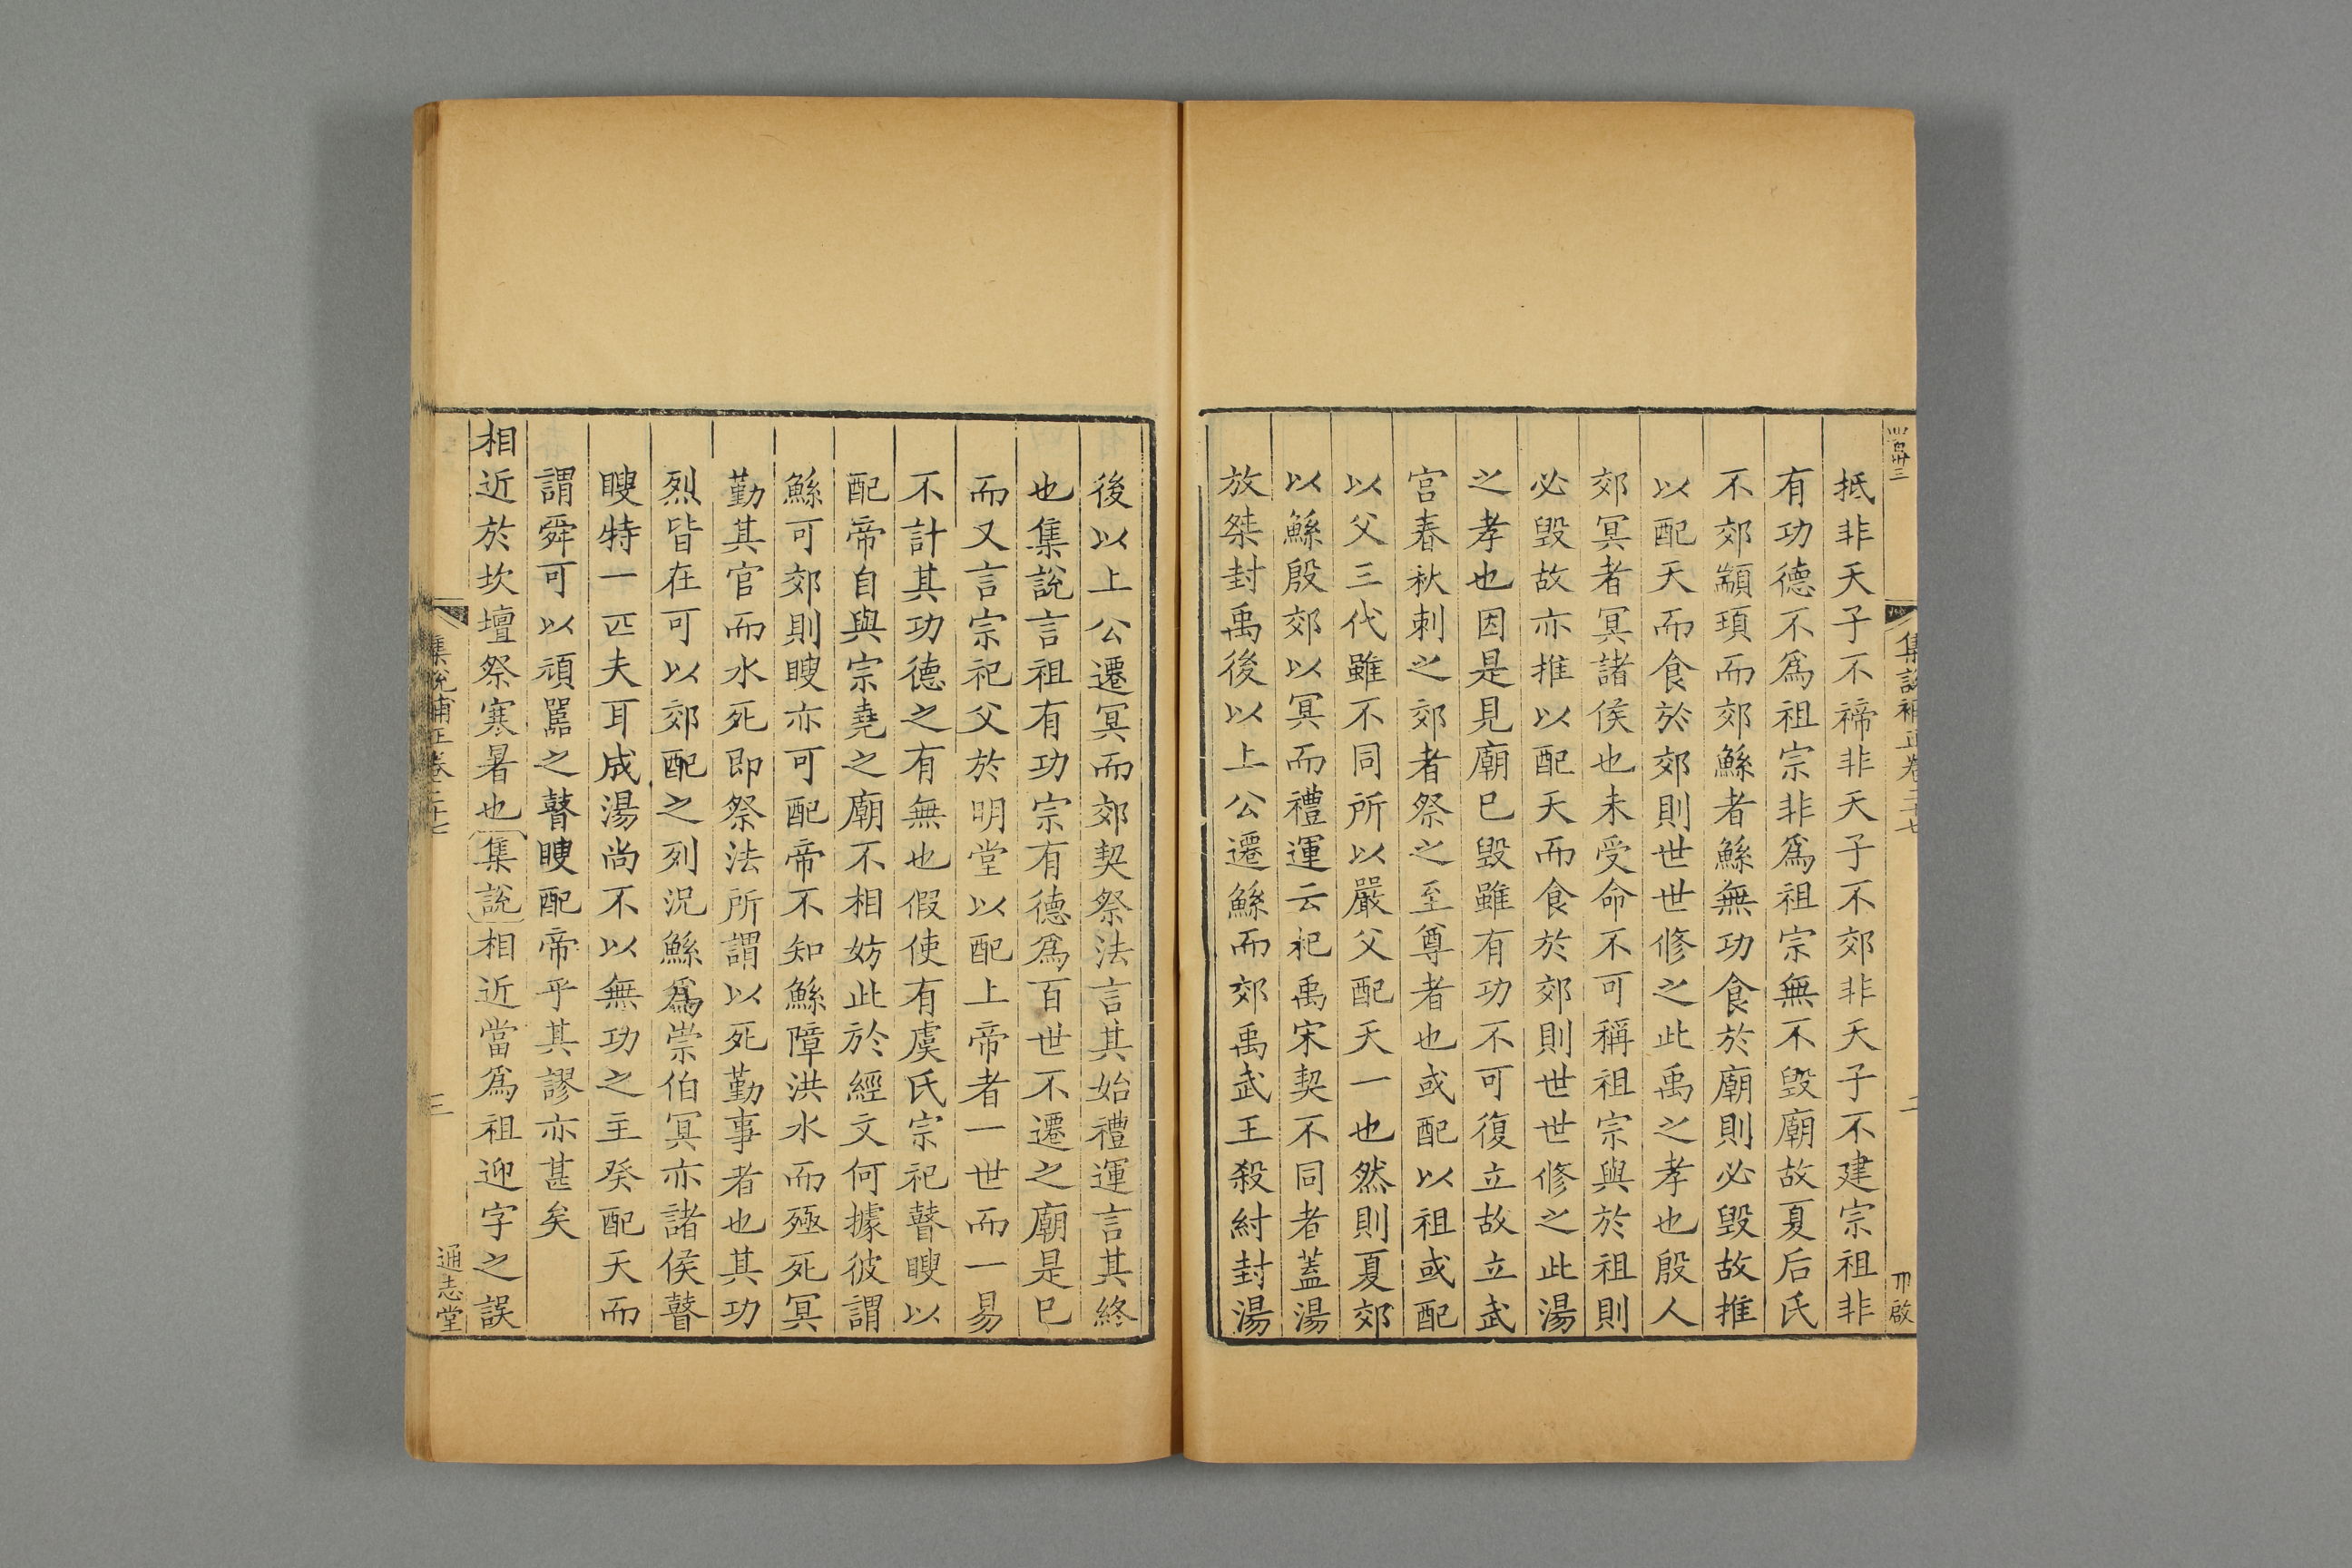 抵非天子不禘非天子不郊非天子不建宗祖非
有功德不爲祖宗非爲祖宗無不毀廟故夏后氏
不郊顓頊而郊鯀者鯀無功食於廟則必毀故推
以配天而食於郊則世世修之此禹之孝也殷人
郊冥者冥諸侯也未受命不可稱祖宗與於祖則
必毀故亦推以配天而食於郊則世世修之此湯
之孝也因是見廟已毀雖有功不可復立故立武
宮春秋刺之郊者祭之至尊者也或配以祖或配
以父三代雖不同所以嚴父配天一也然則夏郊
以鯀殷郊以冥而禮運云祀禹宋契不同者蓋湯
放桀封禹後以上公遷鯀而郊禹武王殺紂封湯
後以上公遷冥而郊契祭法言其始禮運言其終
也集說言祖有功宗有德爲百世不遷之廟是已
而又言宗祀父於明堂以配上帝者一世而一易
不計其功德之有無也假使有虞氏宗祀瞽瞍以
配帝自與宗堯之廟不相妨此於經文何據彼謂
鯀可郊則瞍亦可配帝不知鯀障洪水而殛死冥
勤其官而水死即祭法所謂以死勤事者也其功
烈皆在可以郊配之列況鯀爲崇伯冥亦諸侯瞽
瞍特一匹夫耳成湯尚不以無功之主癸配天而
謂舜可以頑嚚之瞽瞍配帝乎其謬亦甚矣
相近於坎壇祭寒暑也集說相近當爲祖迎字之誤
集說補正卷三十七
三
通志堂